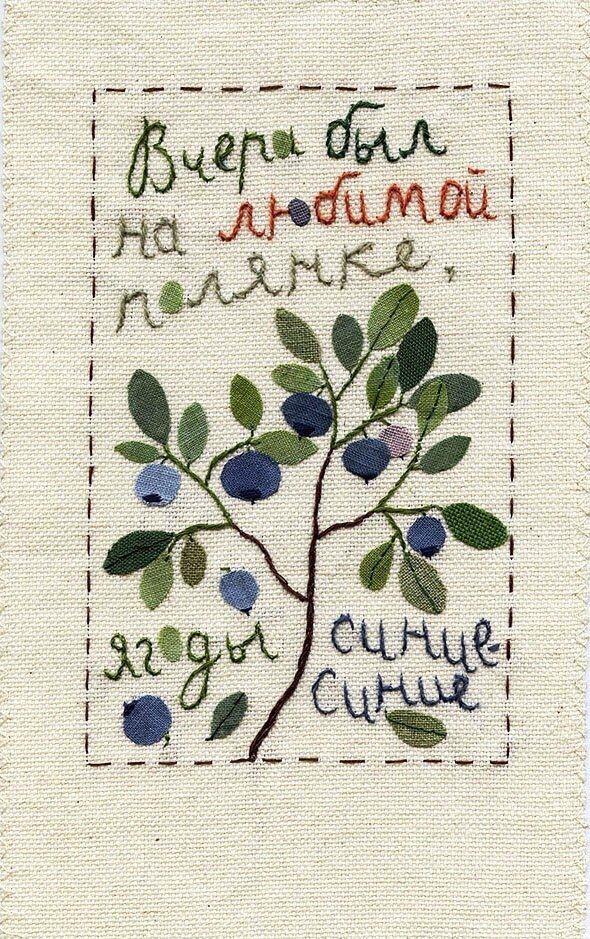 Вчера был
на любимой
полянке,
ягоды синие-
синие